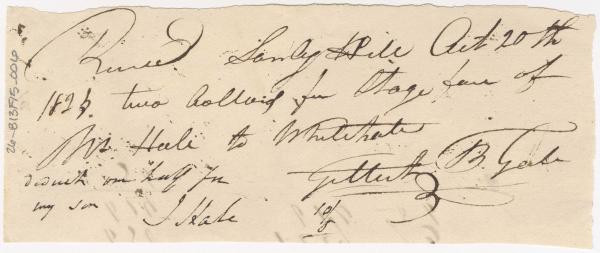 Recd Sandy Hill Oct 20th
1825. two dollars for Stage fare of
Mr Hale to Whitehall
Gilbert B. Gale
deduct one half for
my son
J Hale
10/
8
26-813F15-006